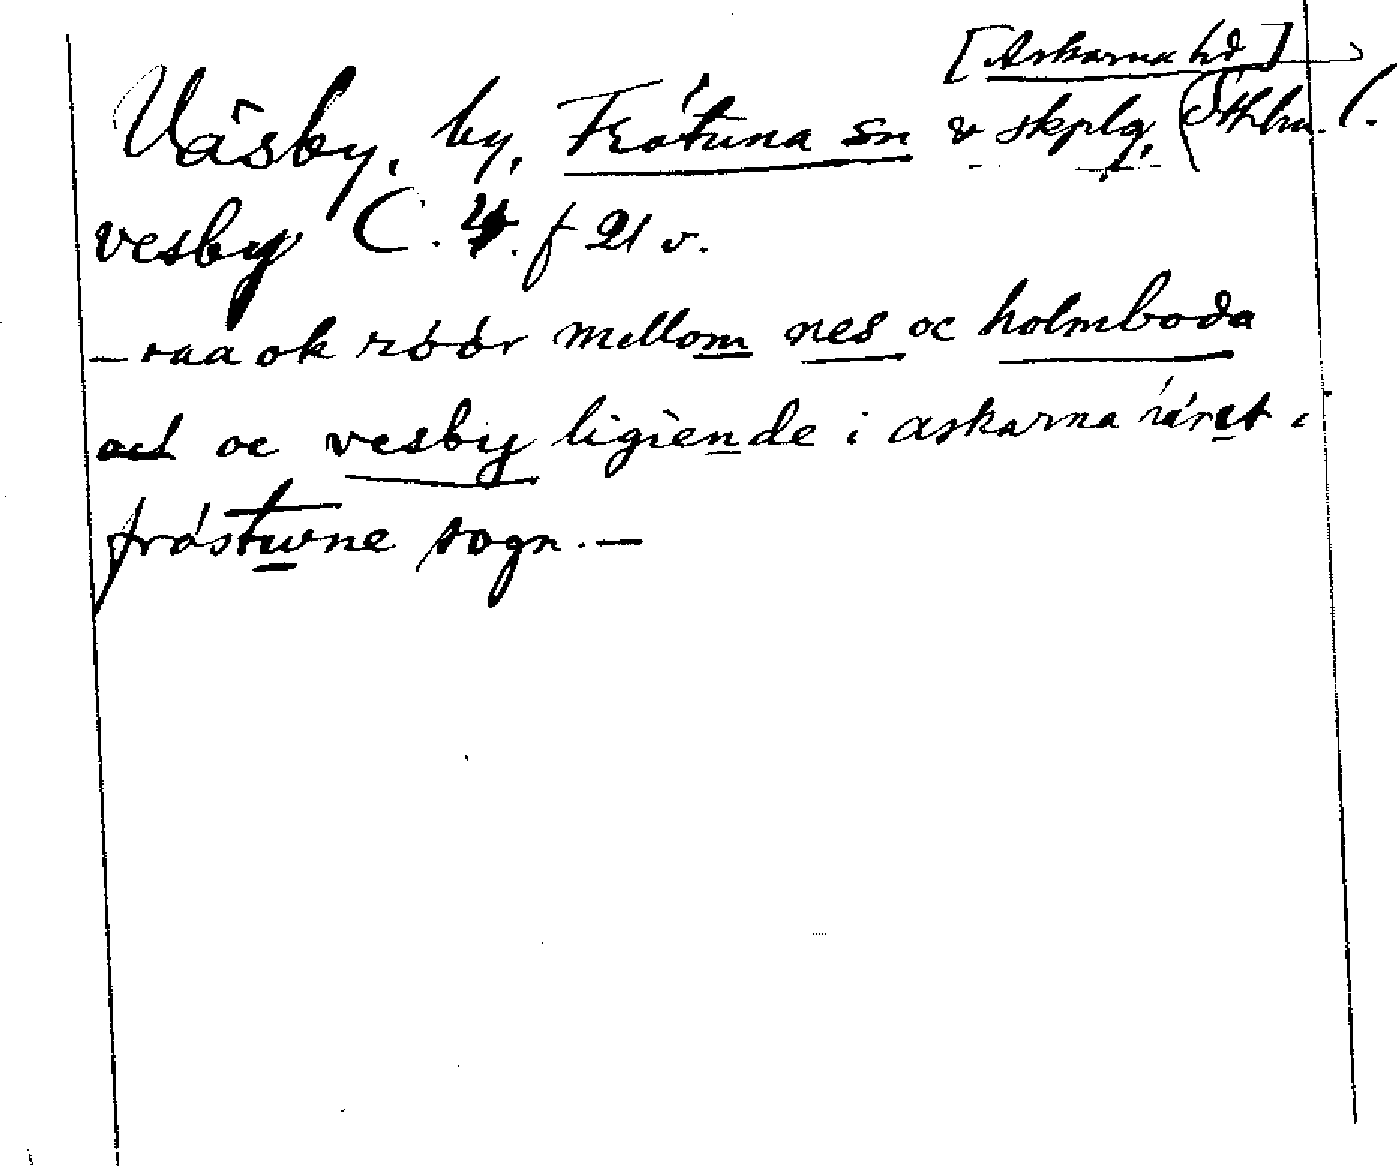 [Askarna hd]
Väsby, by, Frötuna sn v skplg. (Sthlm. l.
vesby C. 4. f 21 v.
– raa ok róór mellom nes oc holmboda
oct oc vesby ligiende i askarna
fróstwne sogn. –